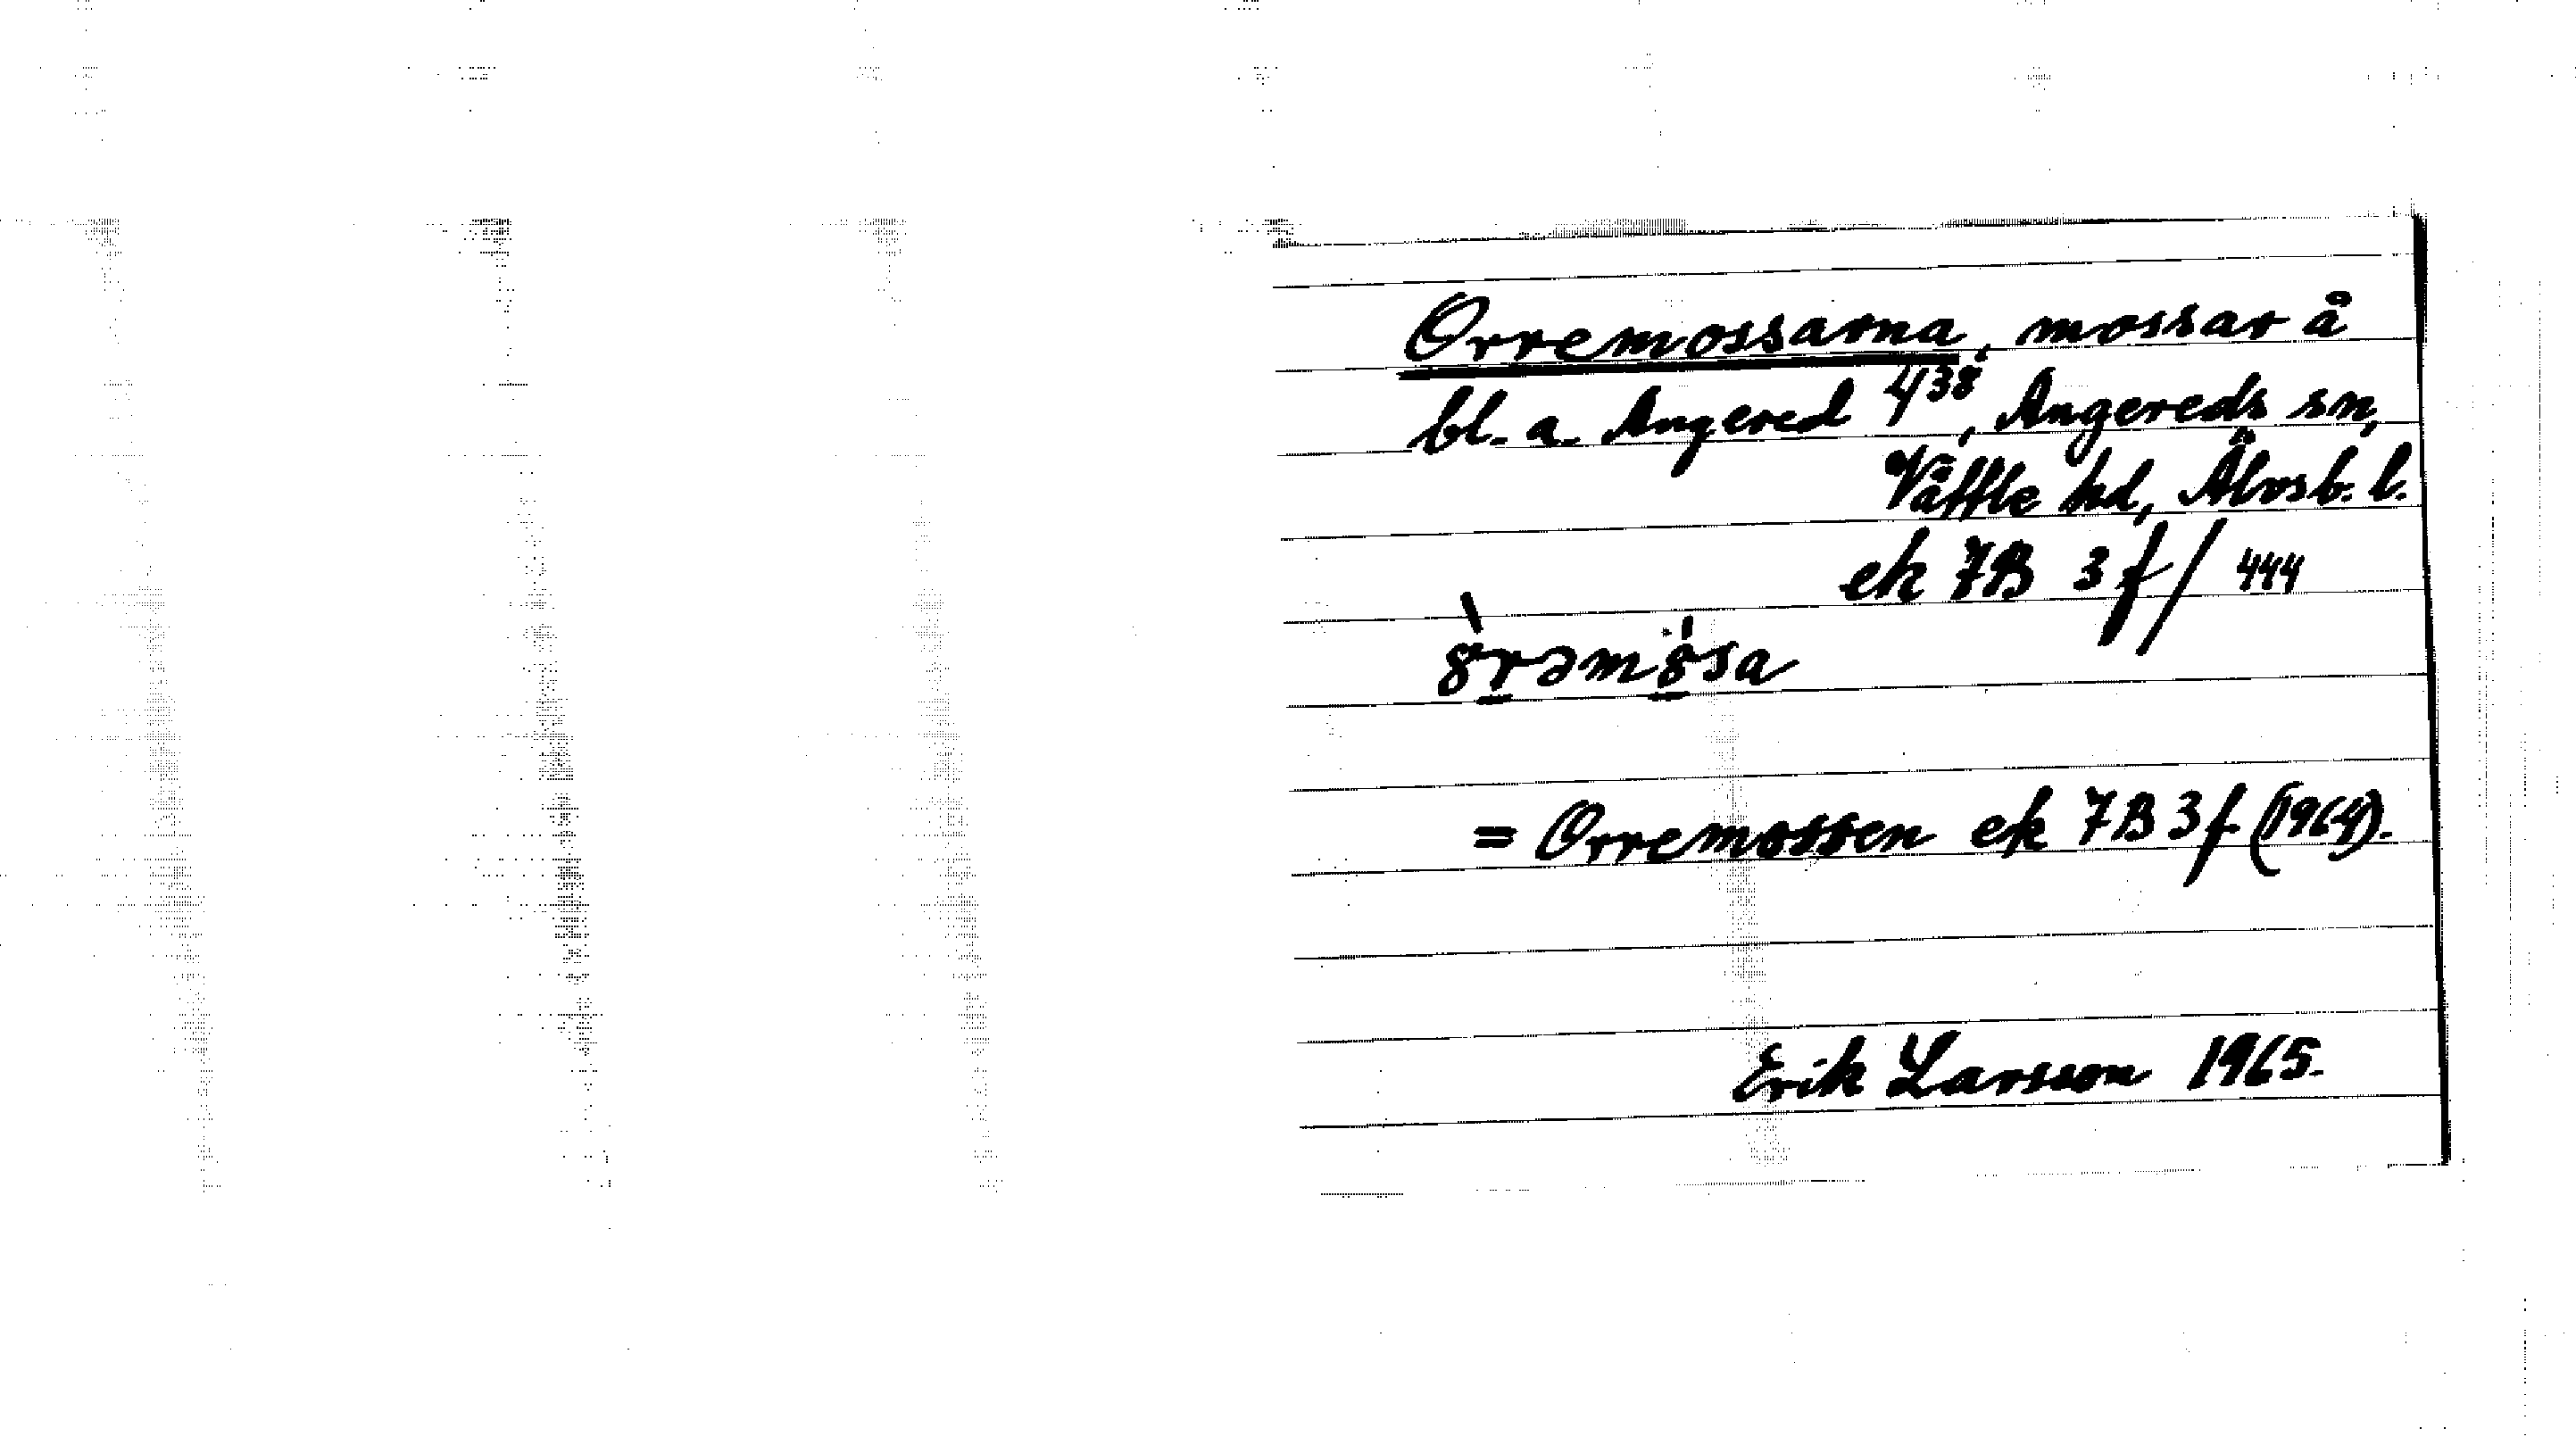 Orremossarna, mossar å
bl. a. Angered 4³⁸, Angereds sn,
Vättle hd, Älvsb. l.
ek 7B 3f/444
= Orremossen ek 7B 3f (1964).
Erik Larsson 1965.